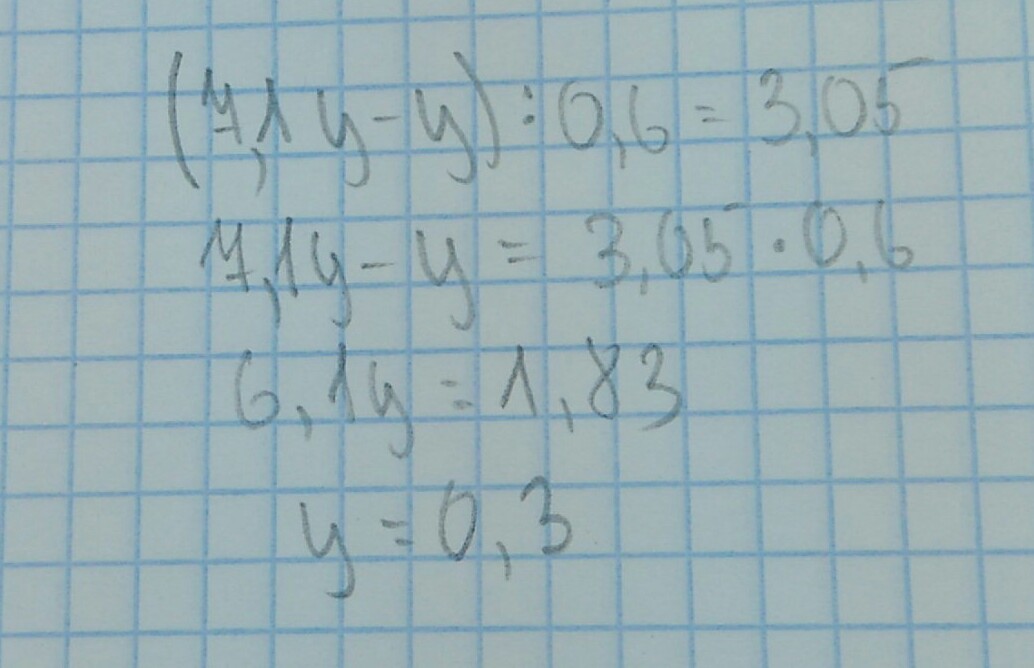 (7,1y-y):0,6=3,05
7,1y-y=3,05·0,6
6,1y=1,83
y=0,3